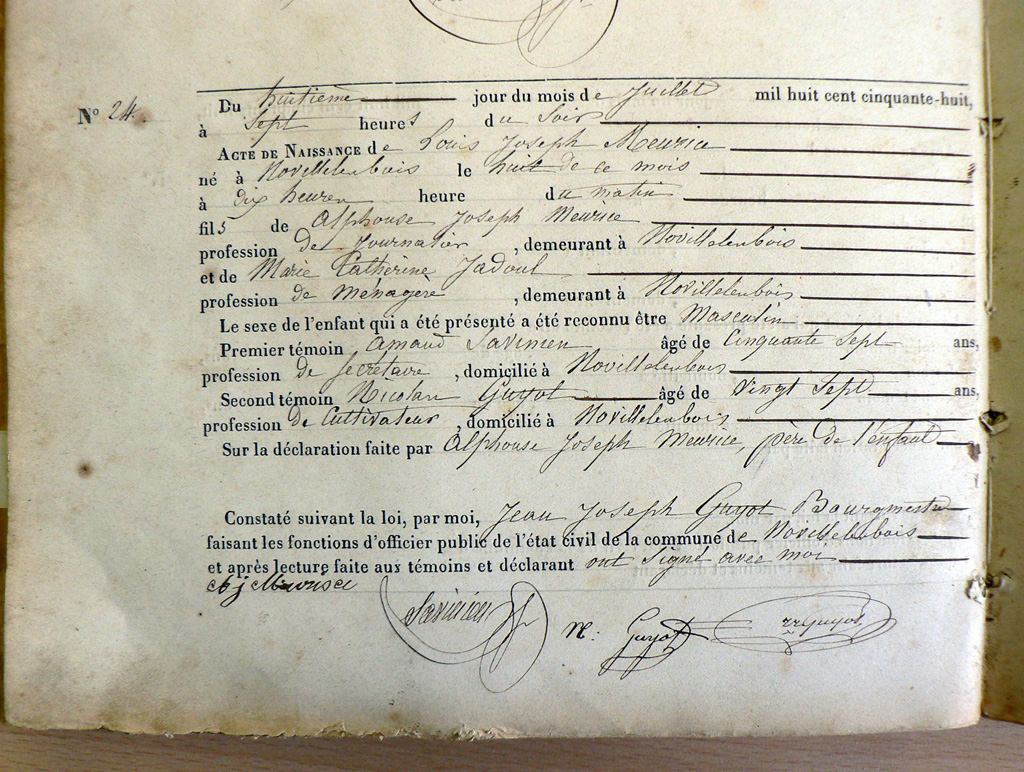 N° 24.
Du huitième jour du mois de Juillet mil huit cent cinquante-huit,
à Sept heures du Soir
ACTE DE NAISSANCE de Louis Joseph Meurice
né à Novillelenbois le huit de ce mois
à dix heures heure du matin
fils de Alphonse Joseph Meurice
profession de Journalier, demeurant à Novillelenbois
et de Marie Catherine Jadoul
profession de ménagère, demeurant à Novillelenbois
Le sexe de l'enfant qui a été présenté a été reconnu être Masculin
Premier témoin Amand Savinien âgé de Cinquante Sept ans,
profession de Secrétaire, domicilié à Novillelenbois
Second témoin Nicolas Guyot âgé de Vingt Sept ans,
profession de Cultivateur, domicilié à Novillelenbois
Sur la déclaration faite par Alphonse Joseph Meurice, père de l'enfant
Constaté suivant la loi, par moi, Jean Joseph Guyot Bourgmestre
faisant les fonctions d'officier public de l'état civil de la commune de Novillelenbois
et après lecture faite aux témoins et déclarant ont signé avec moi
Savinien
N. Guyot
Guyot